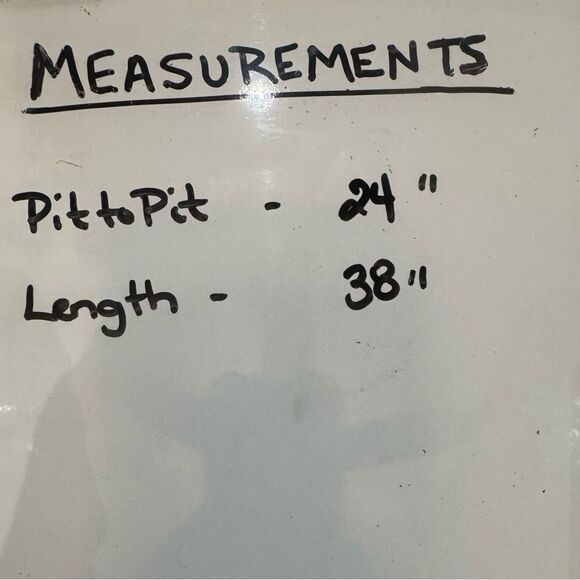 MEASUREMENTS
Pit to Pit - 24"
Length - 38"